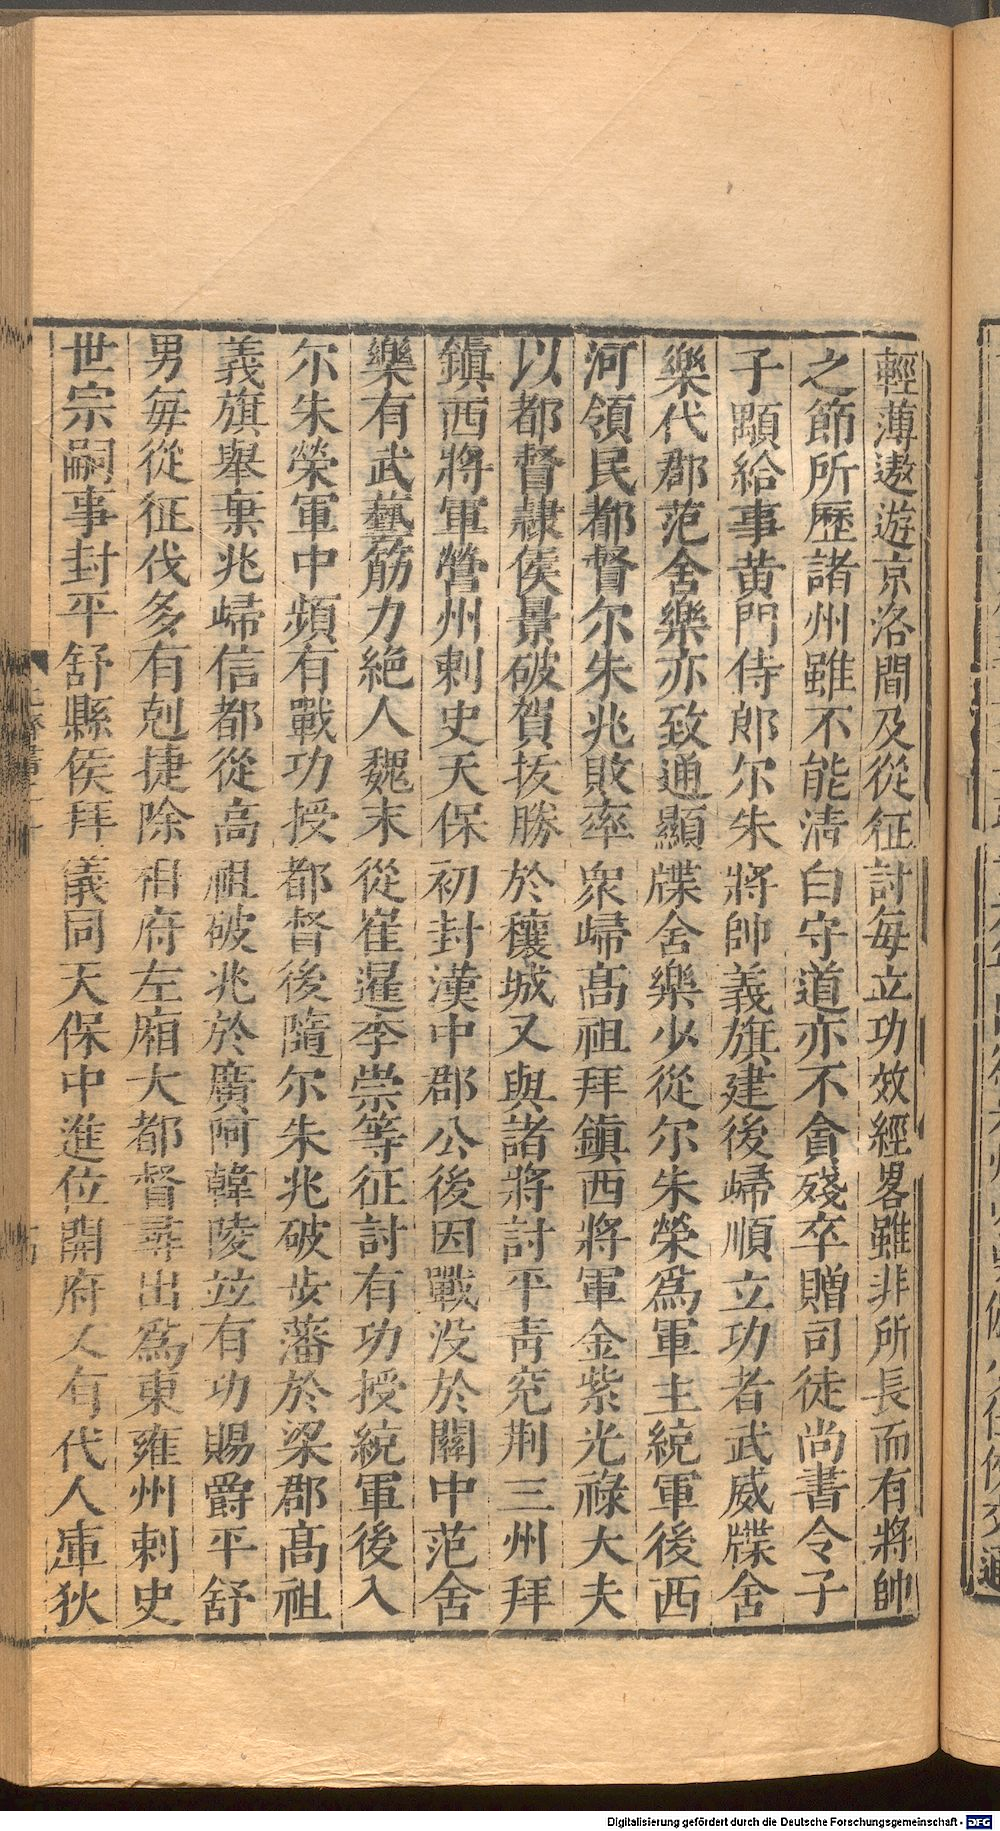 輕薄遨遊京洛間及從征討每立功效經畧雖非所長而有將帥
之節所歷諸州雖不能清白守道亦不貪殘卒贈司徒尚書令子
子顯給事黃門侍郎尔朱將帥義旗建後歸順立功者武威牒舍
樂代郡范舍樂亦致通顯牒舍樂少從尔朱榮為軍主統軍後西
河領民都督尔朱兆敗率衆歸高祖拜鎮西將軍金紫光祿大夫
以都督隷侯景破賀拔勝於穰城又與諸將討平青兖荆三州拜
鎮西將軍營州刺史天保初封漢中郡公後因戰没於關中范舍
樂有武藝筋力絶人魏末從崔暹李崇等征討有功授統軍後入
尔朱榮軍中頻有戰功授都督後隨尔朱兆破步藩於梁郡高祖
義旗舉棄兆歸信都從高祖破兆於廣阿韓陵並有功賜爵平舒
男每從征伐多有剋捷除相府左廂大都督尋出為東雍州刺史
世宗嗣事封平舒縣侯拜儀同天保中進位開府又有代人庫狄
Digitalisierung gefördert durch die Deutsche Forschungsgemeinschaft - DFG